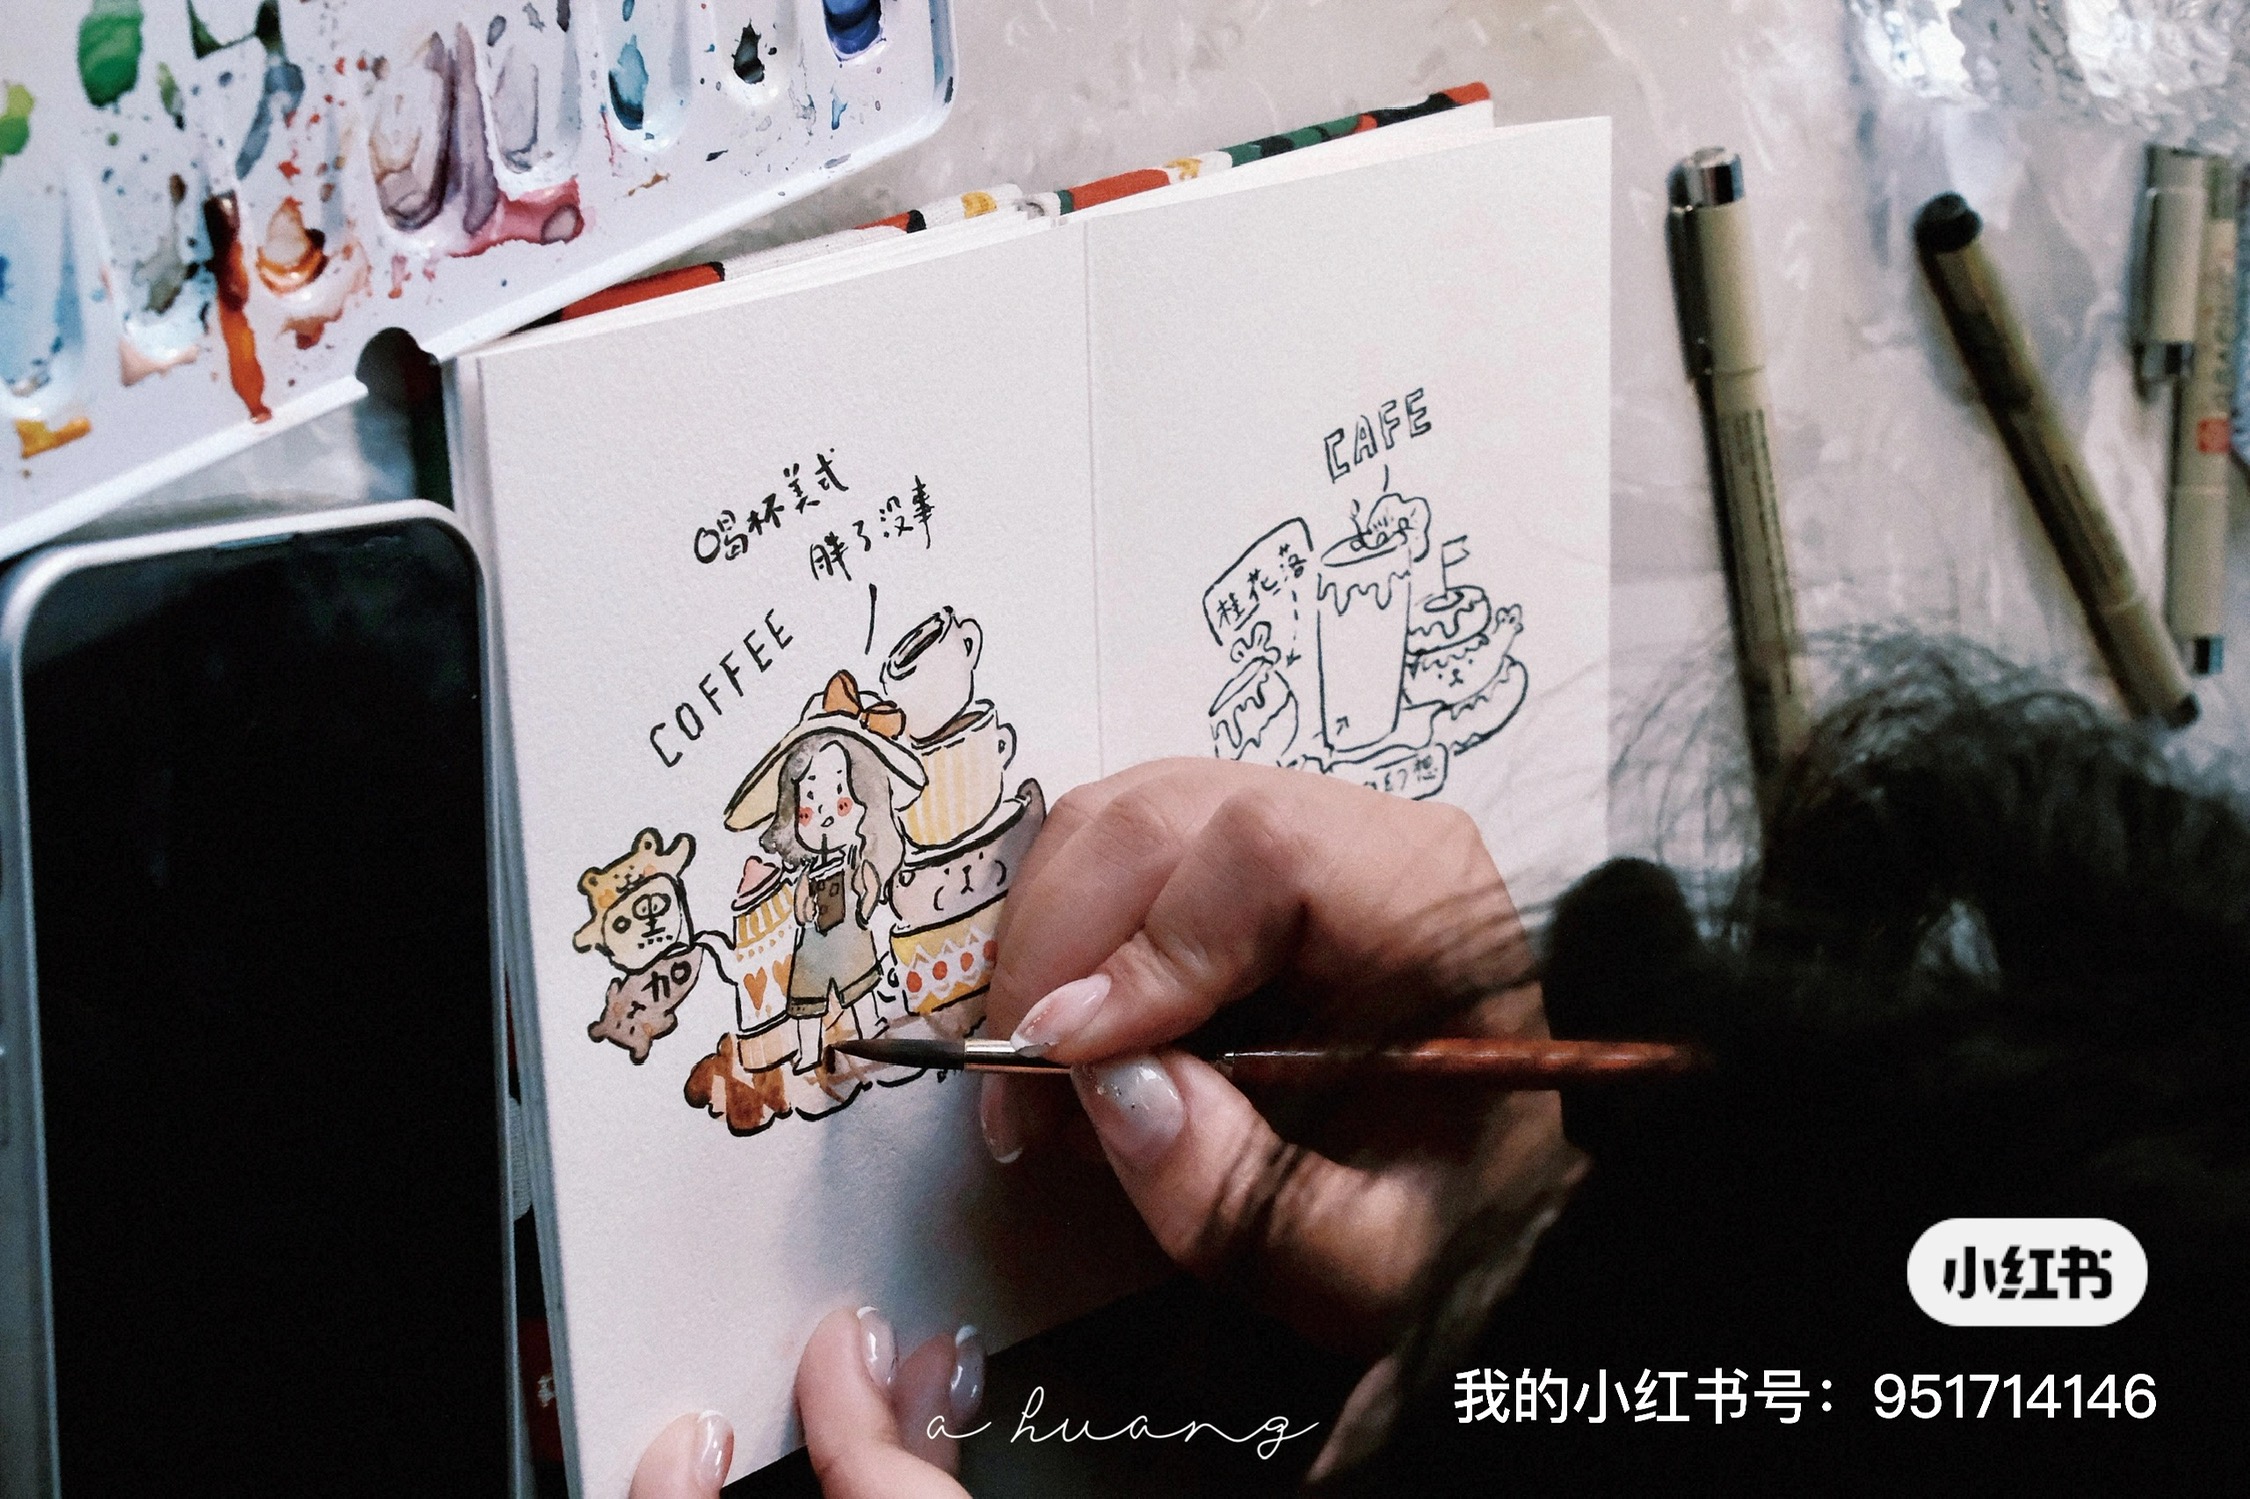 喝杯美式
胖了没事
COFFEE
嘿
加
CAFE
桂花落
幻想
小红书
我的小红书号：951714146
a huang